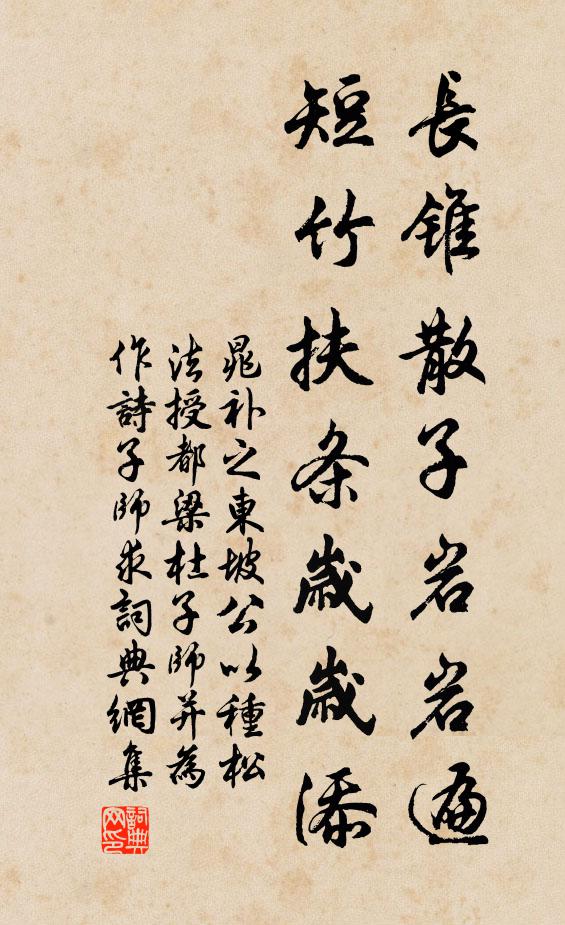 長錐散子岩岩遍
短竹扶条歲歲添
晁补之東坡公以種松
法授都梁杜子師并為
作詩子師求詞典網集
詞典网印